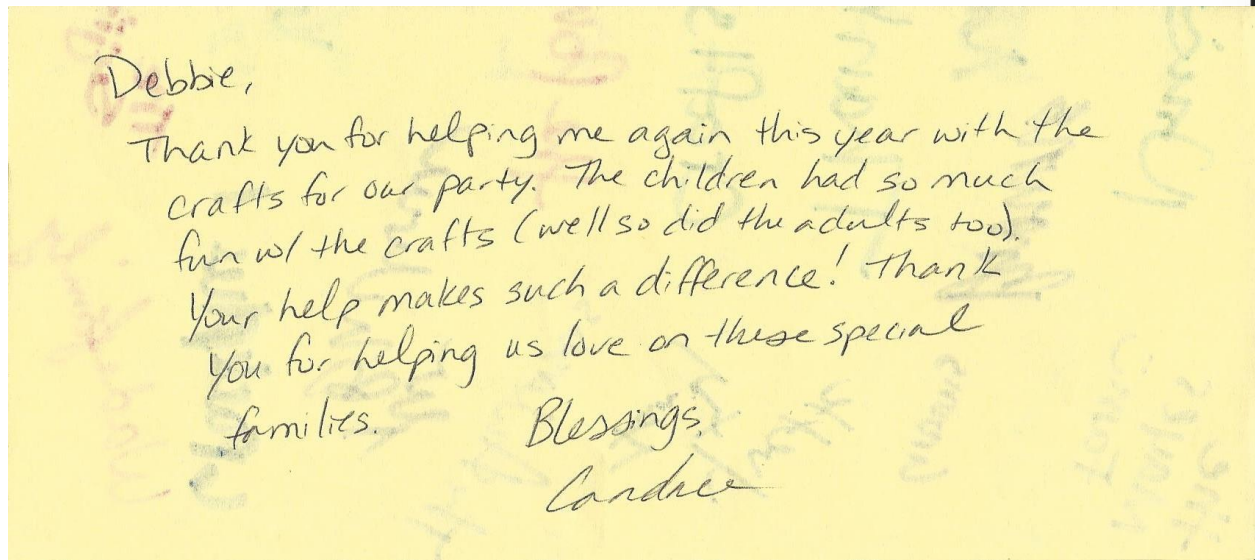 Debbie,
Thank you for helping me again this year with the
crafts for our party. The children had so much
fun w/ the crafts (well so did the adults too).
Your help makes such a difference! Thank
You for helping us love on these special
families. Blessings,
Candace